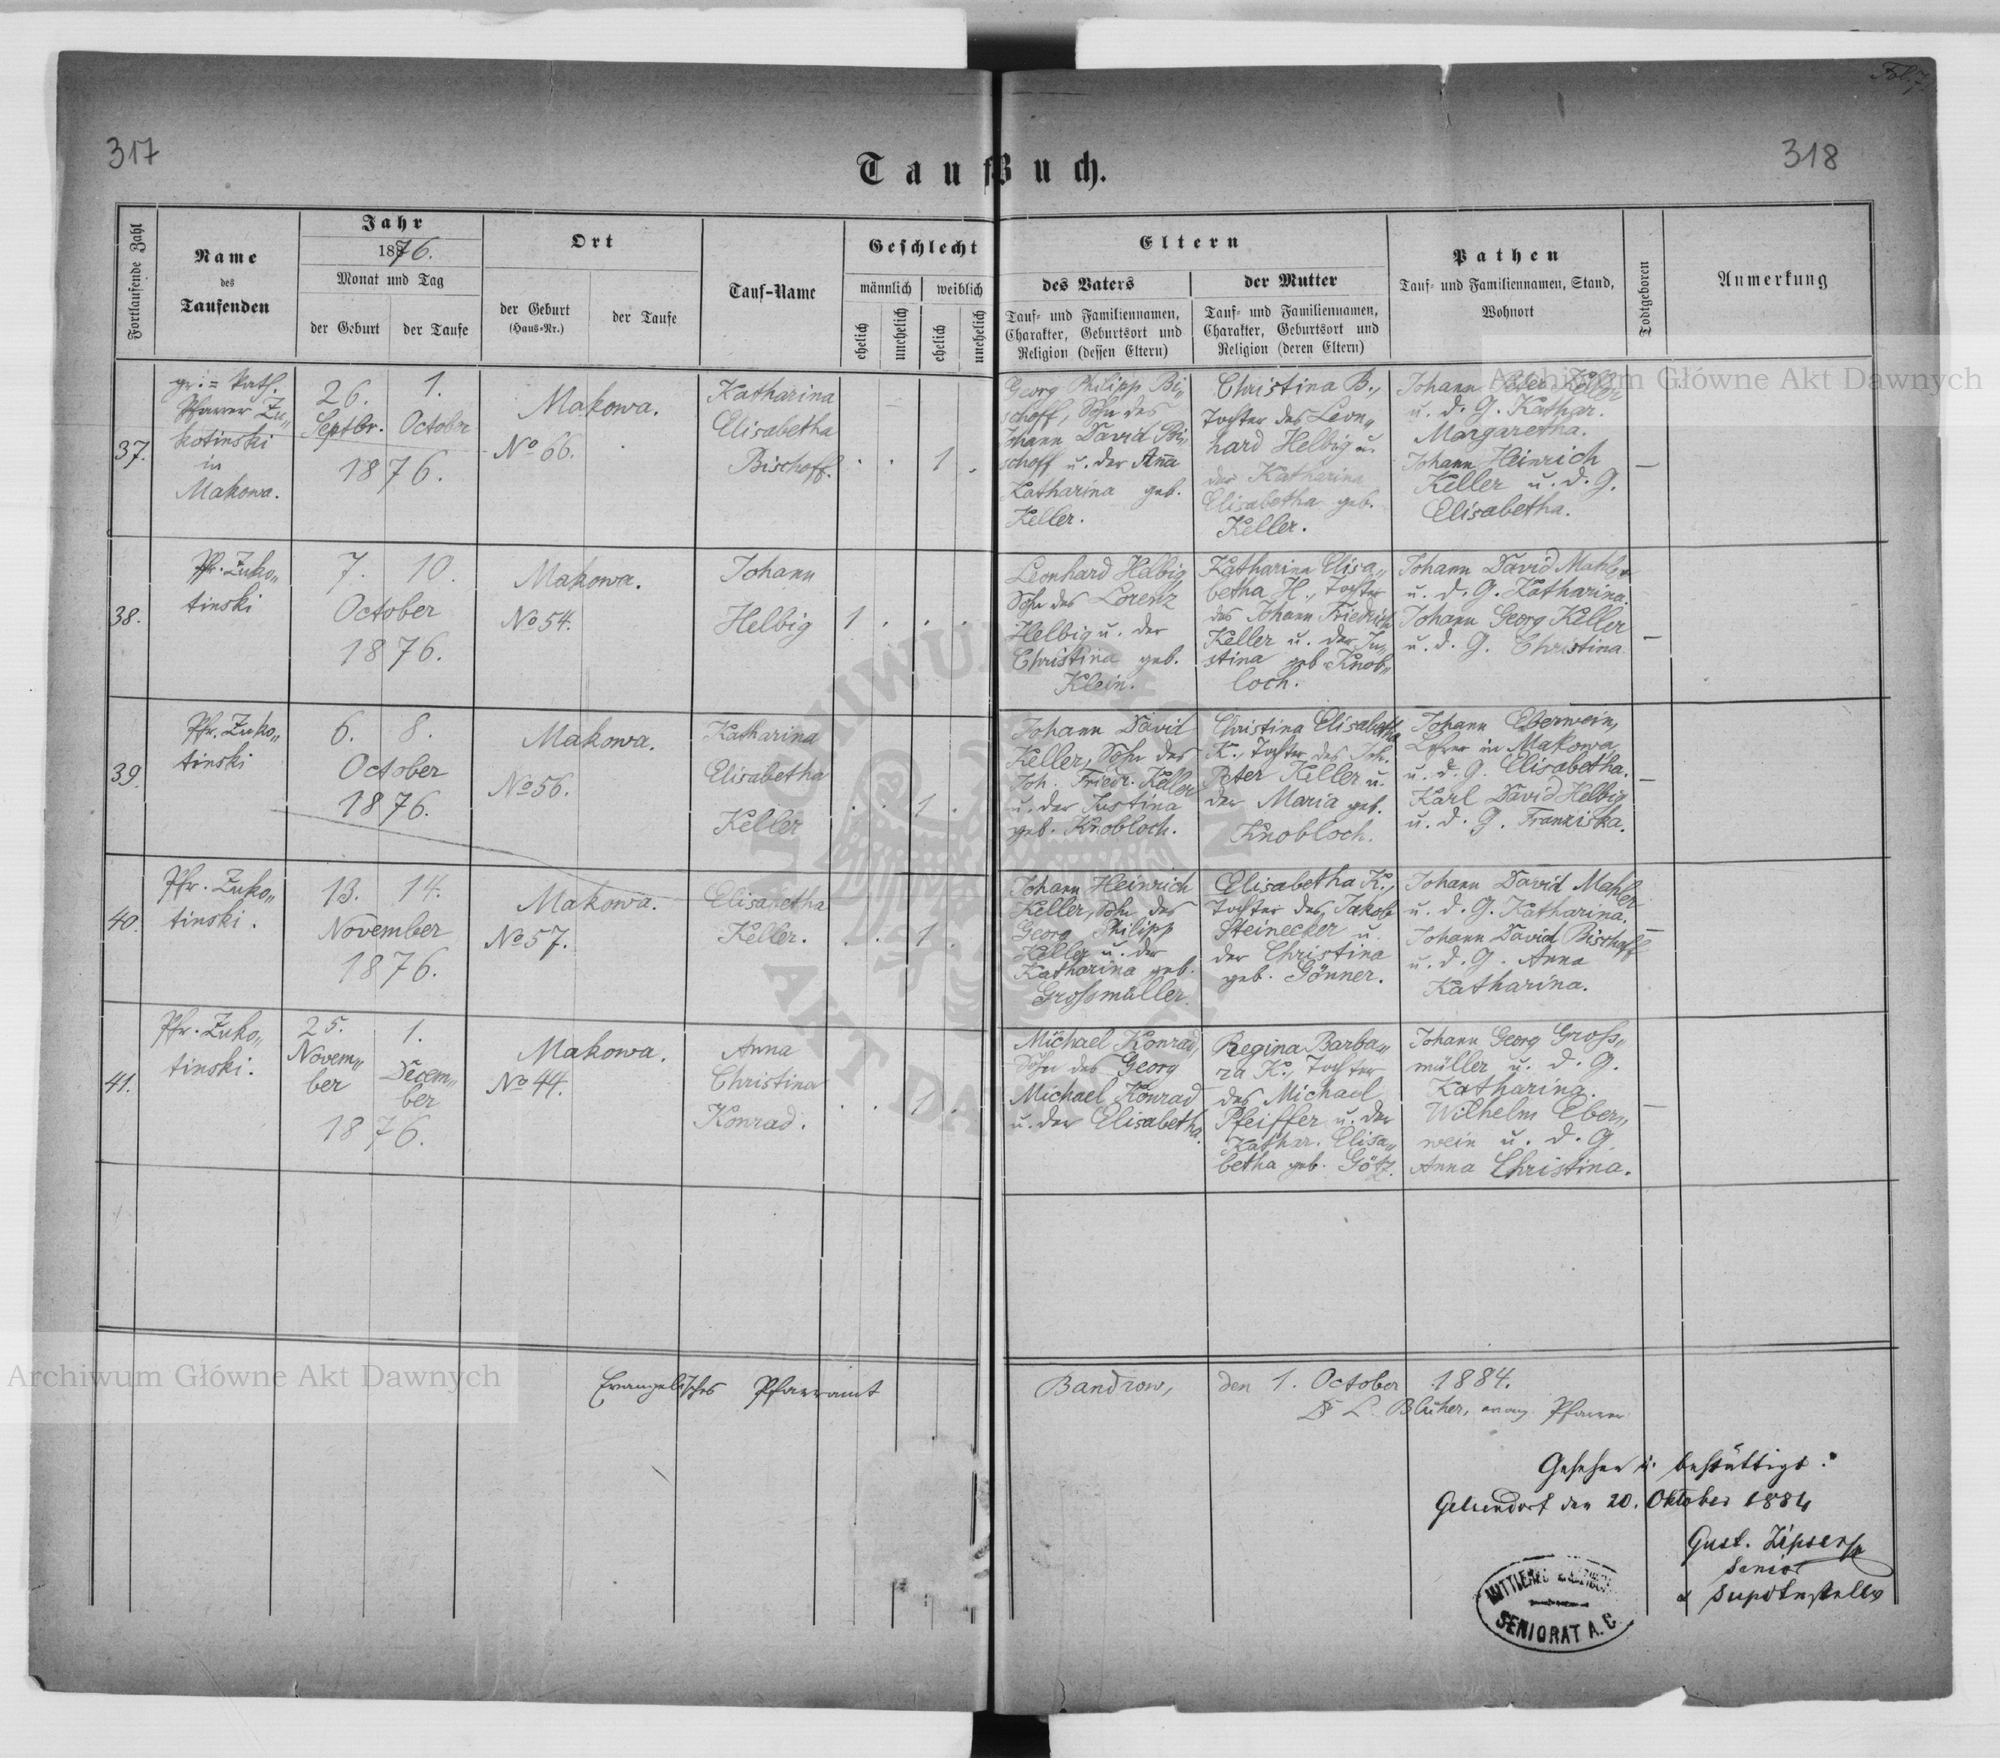 Fol. 7.
317
318
Taufbuch.
Fortlaufende Zahl
Name
des
Taufenden
Jahr
1876.
Monat und Tag
der Geburt
der Taufe
Ort
der Geburt
(Haus-Nr.)
der Taufe
Tauf-Name
Geschlecht
männlich
weiblich
ehelich
unehelich
ehelich
unehelich
Eltern
des Vaters
Tauf- und Familiennamen,
Charakter, Geburtsort und
Religion (dessen Eltern)
der Mutter
Tauf- und Familiennamen,
Charakter, Geburtsort und
Religion (deren Eltern)
Pathen
Tauf- und Familiennamen, Stand,
Wohnort
Todtgeboren
Anmerkung
37.
gr:= kath.
Pfarrer Zu„
kotinski
in
Makowa.
26. 1.
Septbr. October
1876.
Makowa.
No 66.
Katharina
Elisabetha
Bischoff.
1
Georg Philipp Bi„
schoff, Sohn des
Johann David Bi„
schoff u. der Anna
Katharina geb.
Keller.
Christina B.,
Tochter des Leon„
hard Helbig u.
der Katharina
Elisabetha geb.
Keller.
Johann Peter Keller
u. d. G. Kathar.
Margaretha.
Johann Heinrich
Keller u. d. G.
Elisabetha.
—
38.
Pfr. Zuko„
tinski
7. 10.
October
1876.
Makowa.
No 54.
Johann
Helbig
1
Leonhard Helbig,
Sohn des Lorenz
Helbig u. der
Christina geb.
Klein.
Katharina Elisa„
betha H., Tochter
des Johann Friedrich
Keller u. der Ju„
stina geb. Knob„
loch.
Johann David Mahler
u. d. G. Katharina.
Johann Georg Keller
u. d. G. Christina
—
39.
Pfr. Zuko„
tinski
6. 8.
October
1876.
Makowa.
No 56.
Katharina
Elisabetha
Keller
1
Johann David
Keller, Sohn des
Joh. Friedr. Keller
u. der Justina
geb. Knobloch.
Christina Elisabetha
K., Tochter des Joh.
Peter Keller u.
der Maria geb.
Knobloch.
Johann Eberwein,
Lehrer in Makowa
u. d. G. Elisabetha.
Karl David Helbig
u. d. G. Franziska.
—
40.
Pfr. Zuko„
tinski.
13. 14.
November
1876.
Makowa.
No 57.
Elisabetha
Keller.
1
Johann Heinrich
Keller, Sohn des
Georg Philipp
Keller u. der
Katharina geb.
Grossmüller.
Elisabetha K.,
Tochter des Jakob
Steinecker u.
der Christina
geb. Gönner.
Johann David Mahler
u. d. G. Katharina.
Johann David Bischoff
u. d. G. Anna
Katharina.
—
41.
Pfr. Zuko„
tinski.
25. 1.
Novem„
ber
Decem„
ber
1876.
Makowa.
No 44.
Anna
Christina
Konrad.
1
Michael Konrad,
Sohn des Georg
Michael Konrad
u. der Elisabetha.
Regina Barba„
ra K., Tochter
des Michael
Pfeiffer u. der
Kathar. Elisa„
betha geb. Götz.
Johann Georg Gross„
müller u. d. G.
Katharina.
Wilhelm Eber„
wein u. d. G.
Anna Christina.
—
Evangelisches Pfarramt
Bandrow, den 1. October 1884.
Dr L. Blüher, evang. Pfarrer
Gesehen u. bestättigt:
Gelsendorf den 20. Oktober 1884
Gust. Zipser
Senior
SENIORAT A. C.
Archiwum Główne Akt Dawnych
Archiwum Główne Akt Dawnych